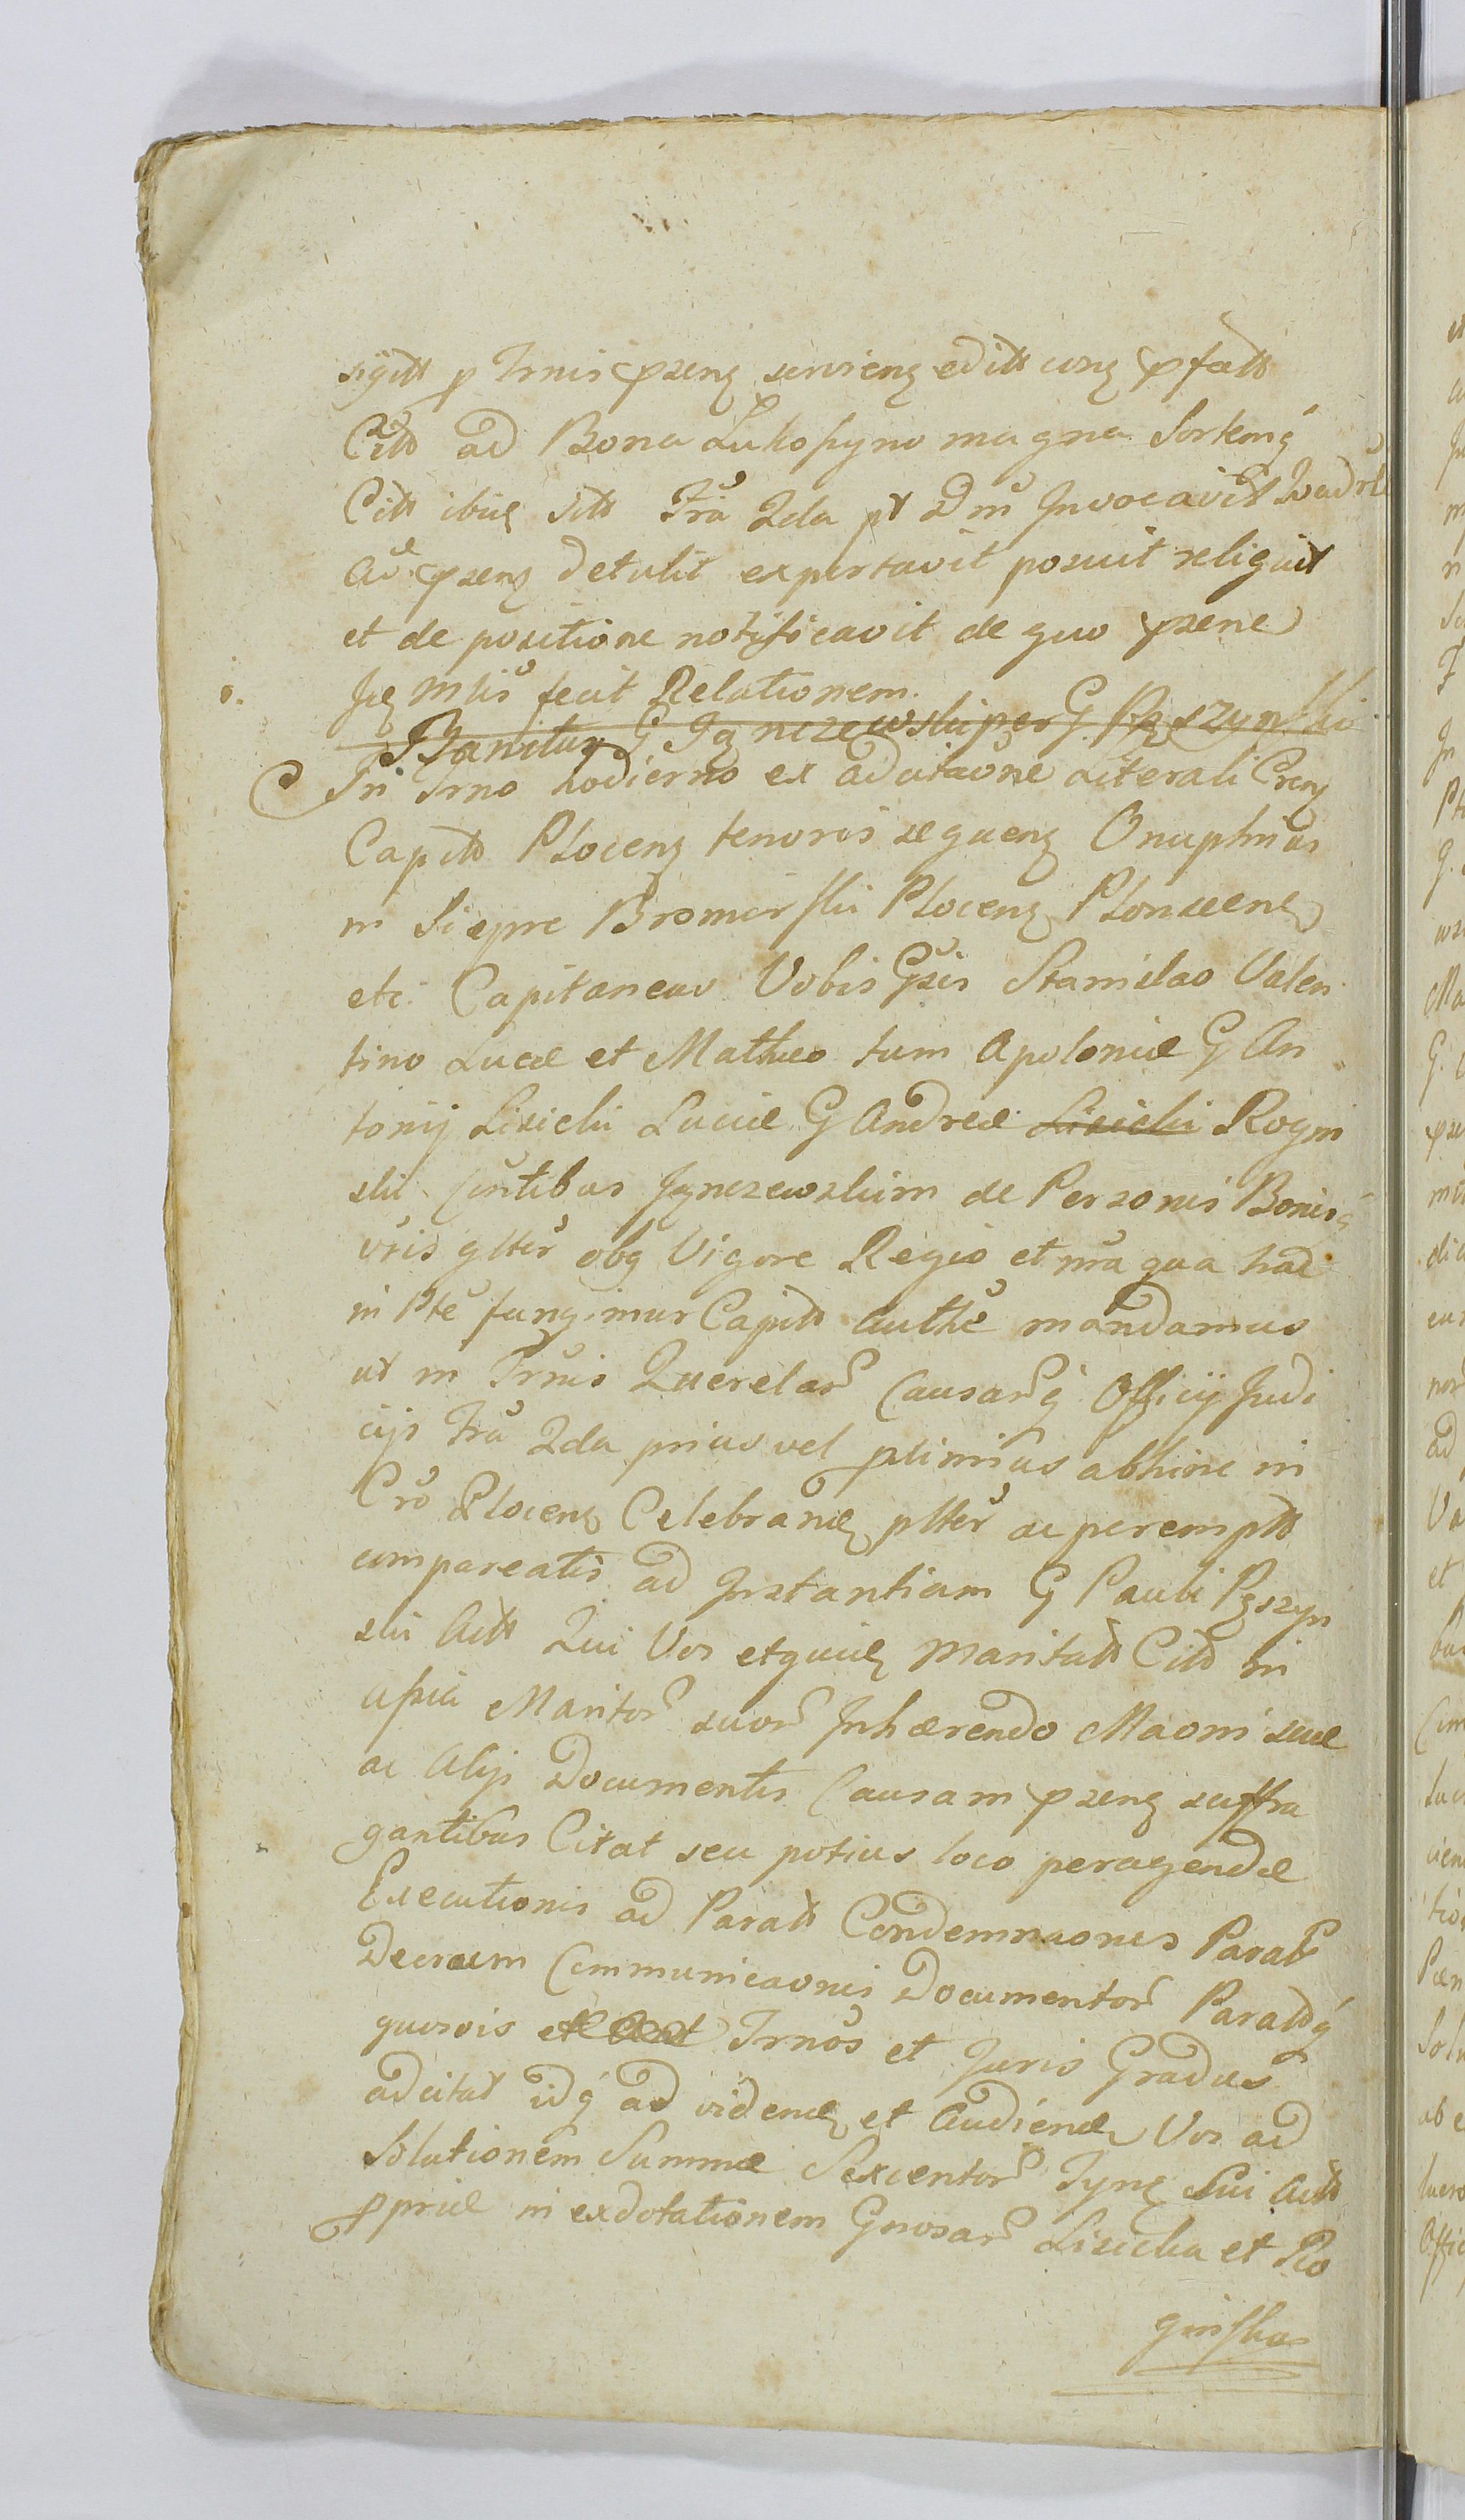 sigitt p Trnis pzenz servienz editt conz pfatt
Citt ad Bona Lukoszyno magna Sortemq
Citt ibid sitt Fra 2da pt Dni Invocavit Quadrle
Ad pzenz detulit exportavit posuit reliquit
et de positione notificavit de quo pzene
Idz Mlis fecit Relationem.
Banitur G Jgnczewski per G Pęszynski
In Trno hodierno ex adcitaone Literali Crenz
Capitt Plocenz tenoris sequenz Onuphrius
in Siepre Bromirski Plocenz Plonscenz
etc Capitaneus Vobis Gzis Stanislao Valen
tino Lucæ et Matheo tum Apoloniæ G An
tonij Lisicki Luciæ G Andreæ Lisicki Rogin
ski Cintibus Jgnczewskim de Personis Bonisq
vris gltir obq Vigore Regio et nra qua hac
in Pte fungimur Capitt Authe mandamus
ut in Trnis Querelar Causarq Officij Judi
cijs Fra 2da prius vel plimius abhinc in
Cro Plocenz Celebrand pltter ac peremptt
compareatis ad Instantiam G Pauli Pęszyn
ski Actt Qui Vos et quid maritatt Citt in
assia Maritor suor Inhærendo Maoni suæ
ac Alijs Documentis Causam pzenz suffra
gantibus Citat seu potius loco peragendæ
Executionis ad Paratt Condemnaonis Paratt
Decraem Communicaonis Documentor Parattq
quosvis Trnos et Juris Gradus
adcitat idq ad vidend et Audiend Vos ad
Solutionem Summæ Sexcentor Tynf Sui Actt
ppriæ in exdotationem Gnosar Lisicka et Ro
ginska